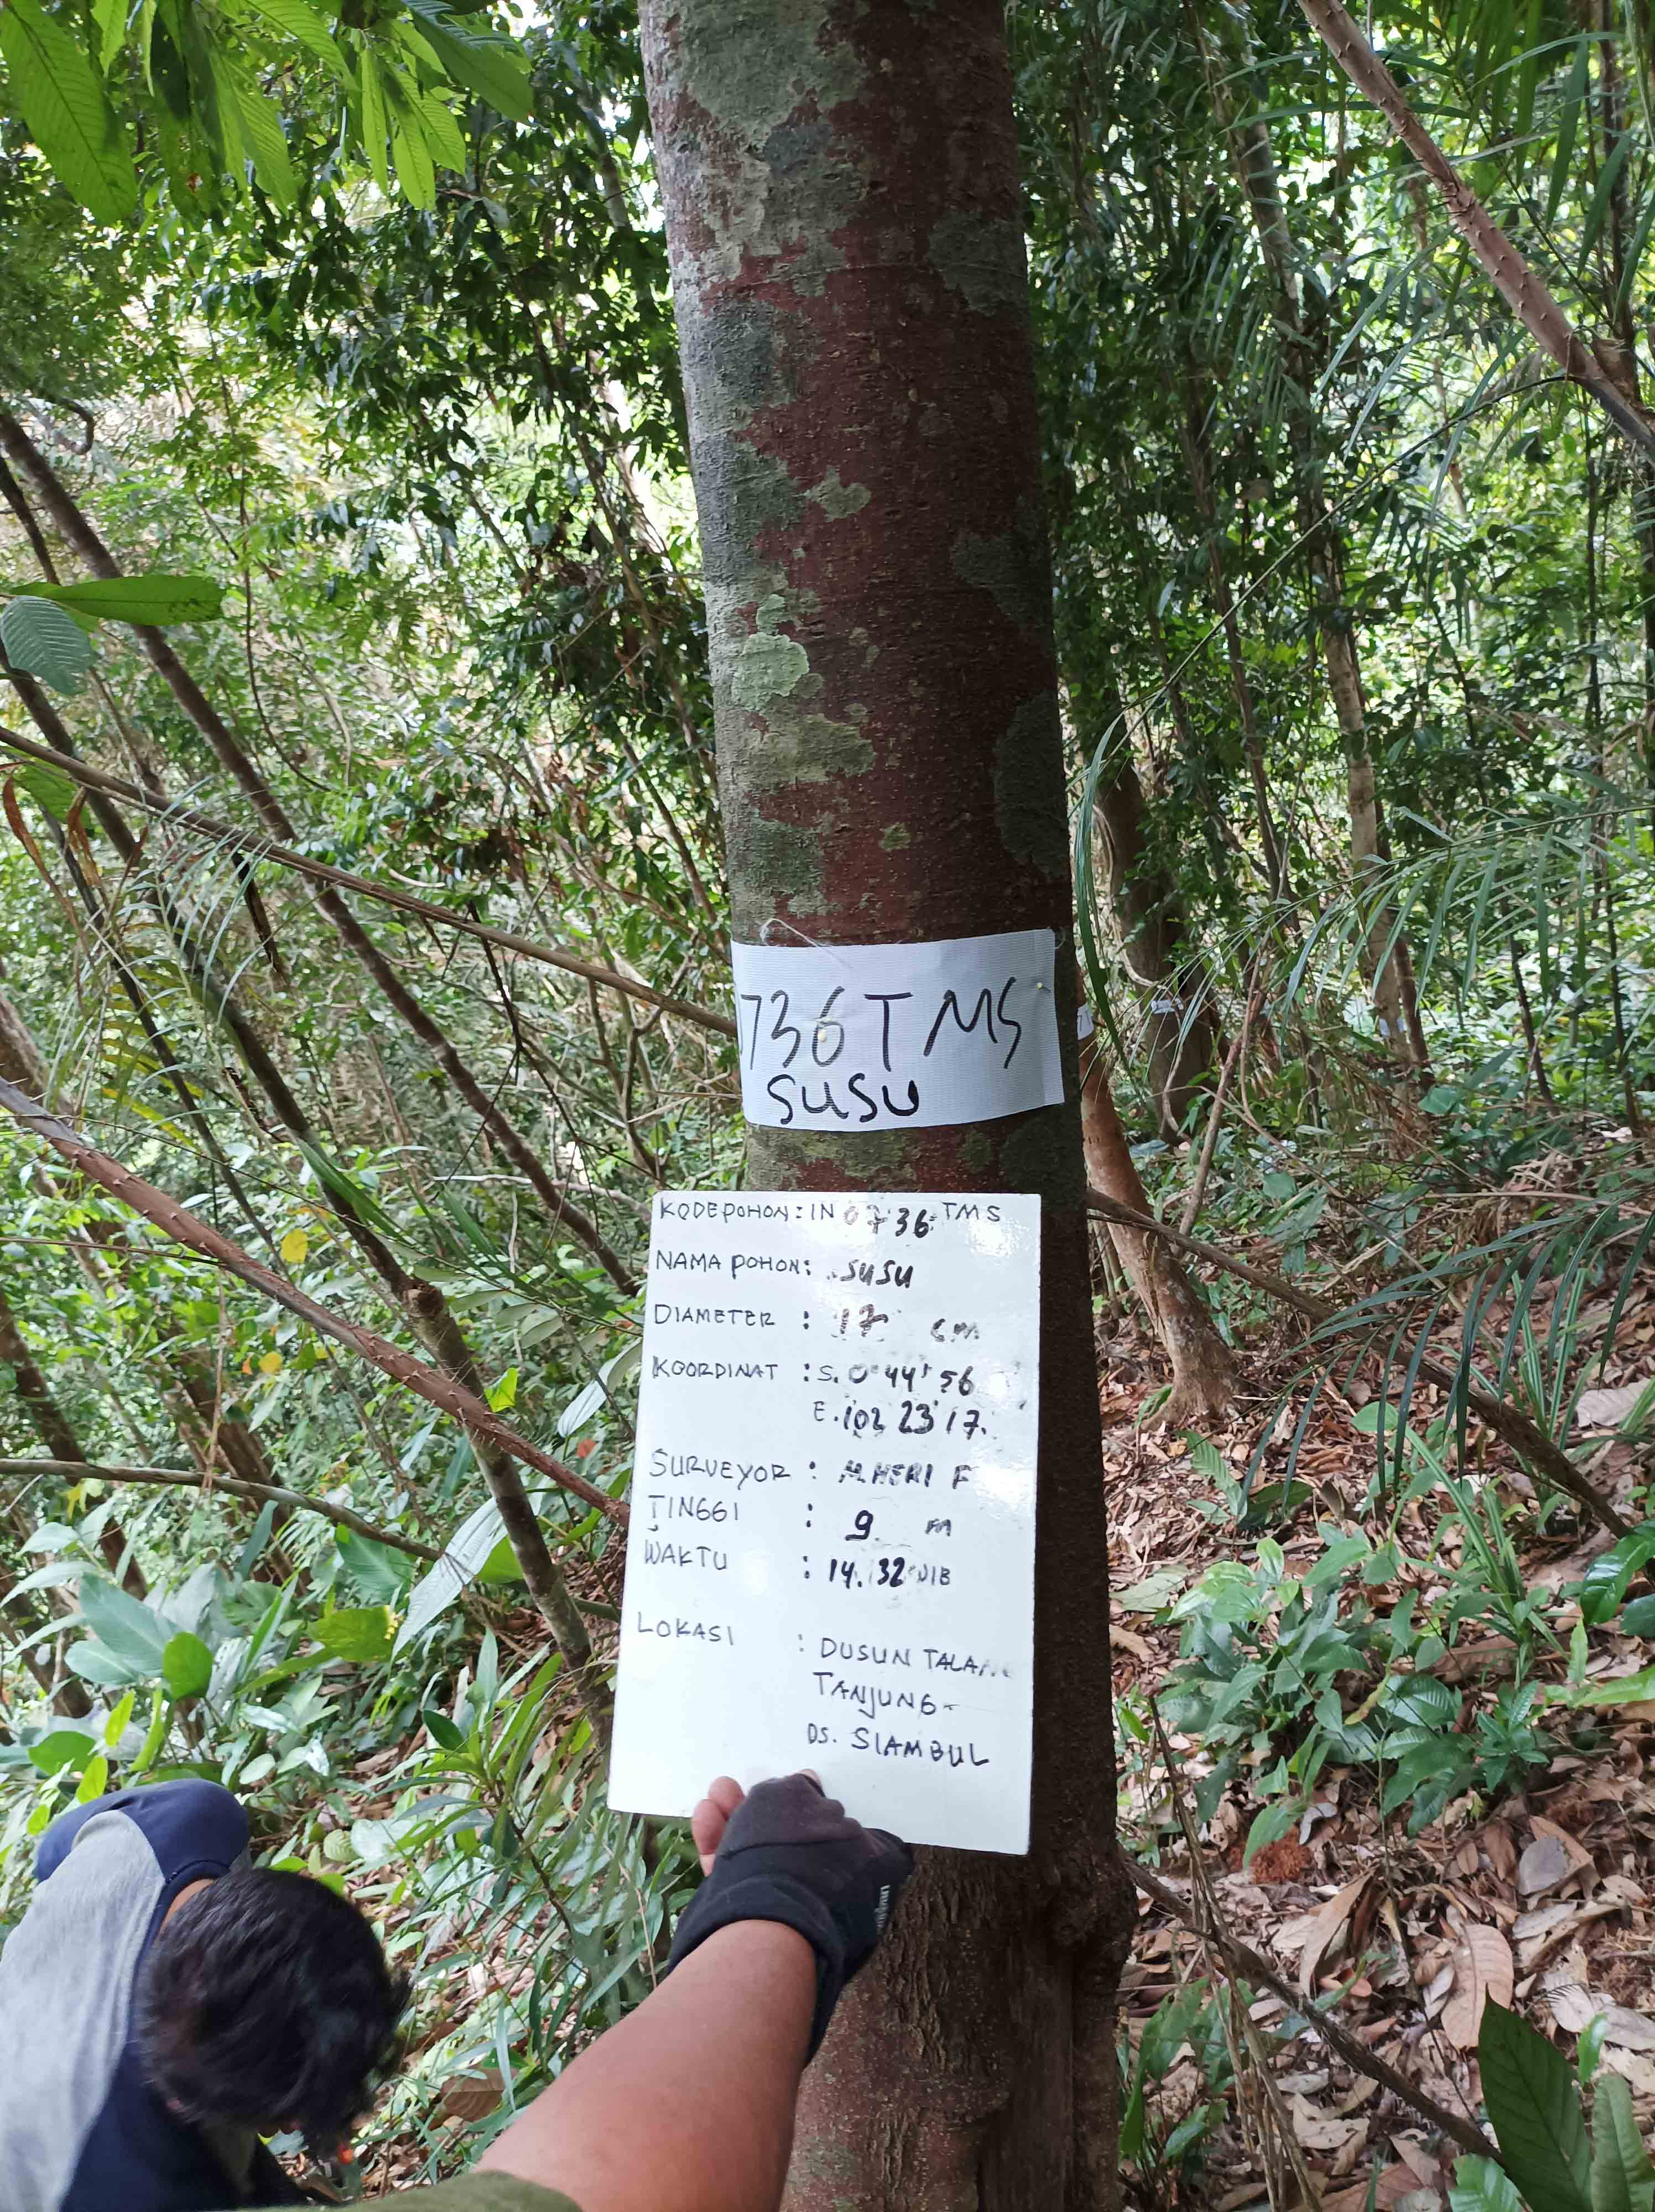 736 TMS
SUSU
KODE POHON : IN 0736 TMS
NAMA POHON : SUSU
DIAMETER : 17 CM
KOORDINAT : S. 0° 44' 56
E. 102 23 17.
SURVEYOR : M. HERI F
TINGGI : 9 M
WAKTU : 14.32 WIB
LOKASI : DUSUN TALANG
TANJUNG
DS. SIAMBUL